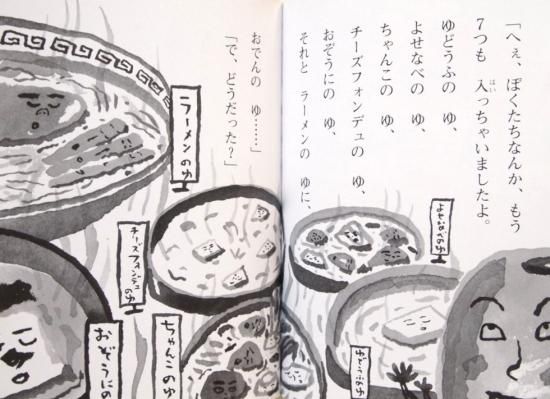 「へぇ、ぼくたちなんか、もう
7つも 入っちゃいましたよ。
ゆどうふの ゆ、
よせなべの ゆ、
ちゃんこの ゆ、
チーズフォンデュの ゆ、
おぞうにの ゆ、
それと ラーメンの ゆに、
おでんの ゆ……」
「で、どうだった？」
よせなべのゆ
ゆどうふのゆ
ラーメンのゆ
チーズフォンデュのゆ
ちゃんこのゆ
おぞうにの